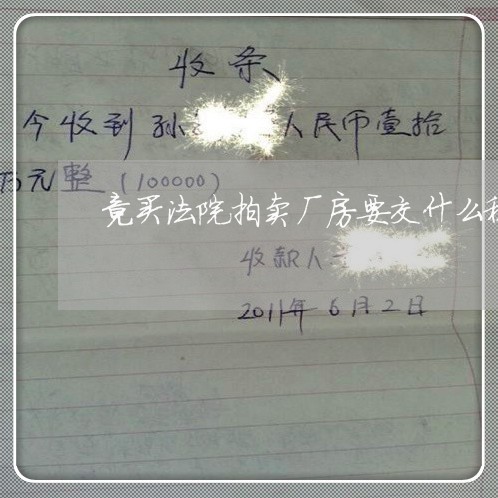 收条
今收到孙 人民币壹拾
万元整（100000）
竟买法院拍卖厂房要交什么
收款人
2011年6月2日